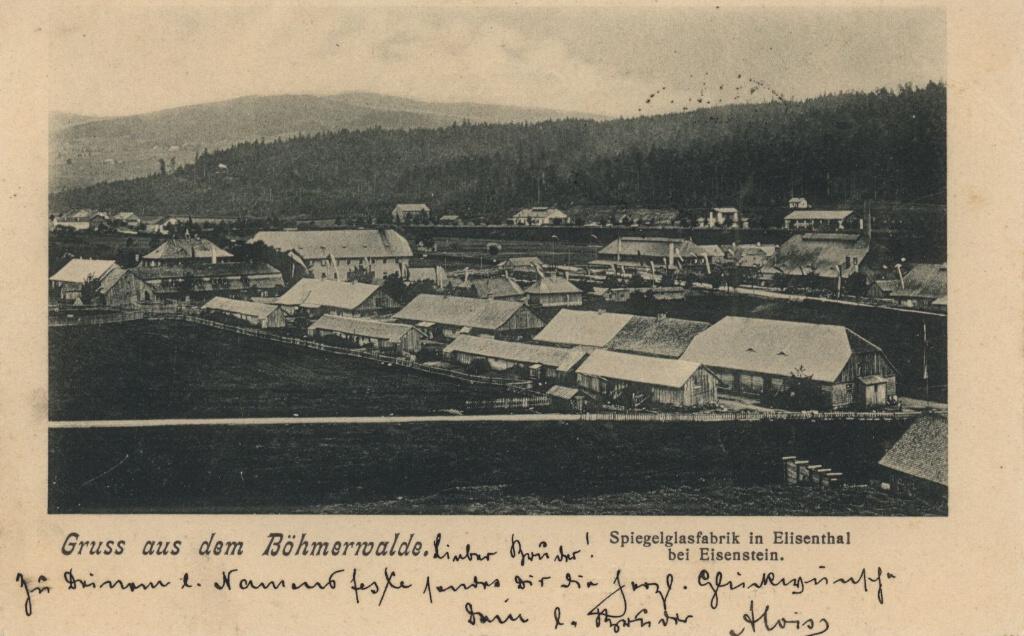 Gruss aus dem Böhmerwalde. Lieber Bruder!
Spiegelglasfabrik in Elisenthal
bei Eisenstein.
Zu Deinem l. Namensfeste sendet Dir die herzl. Glückwünsche
Dein l. Bruder Alois